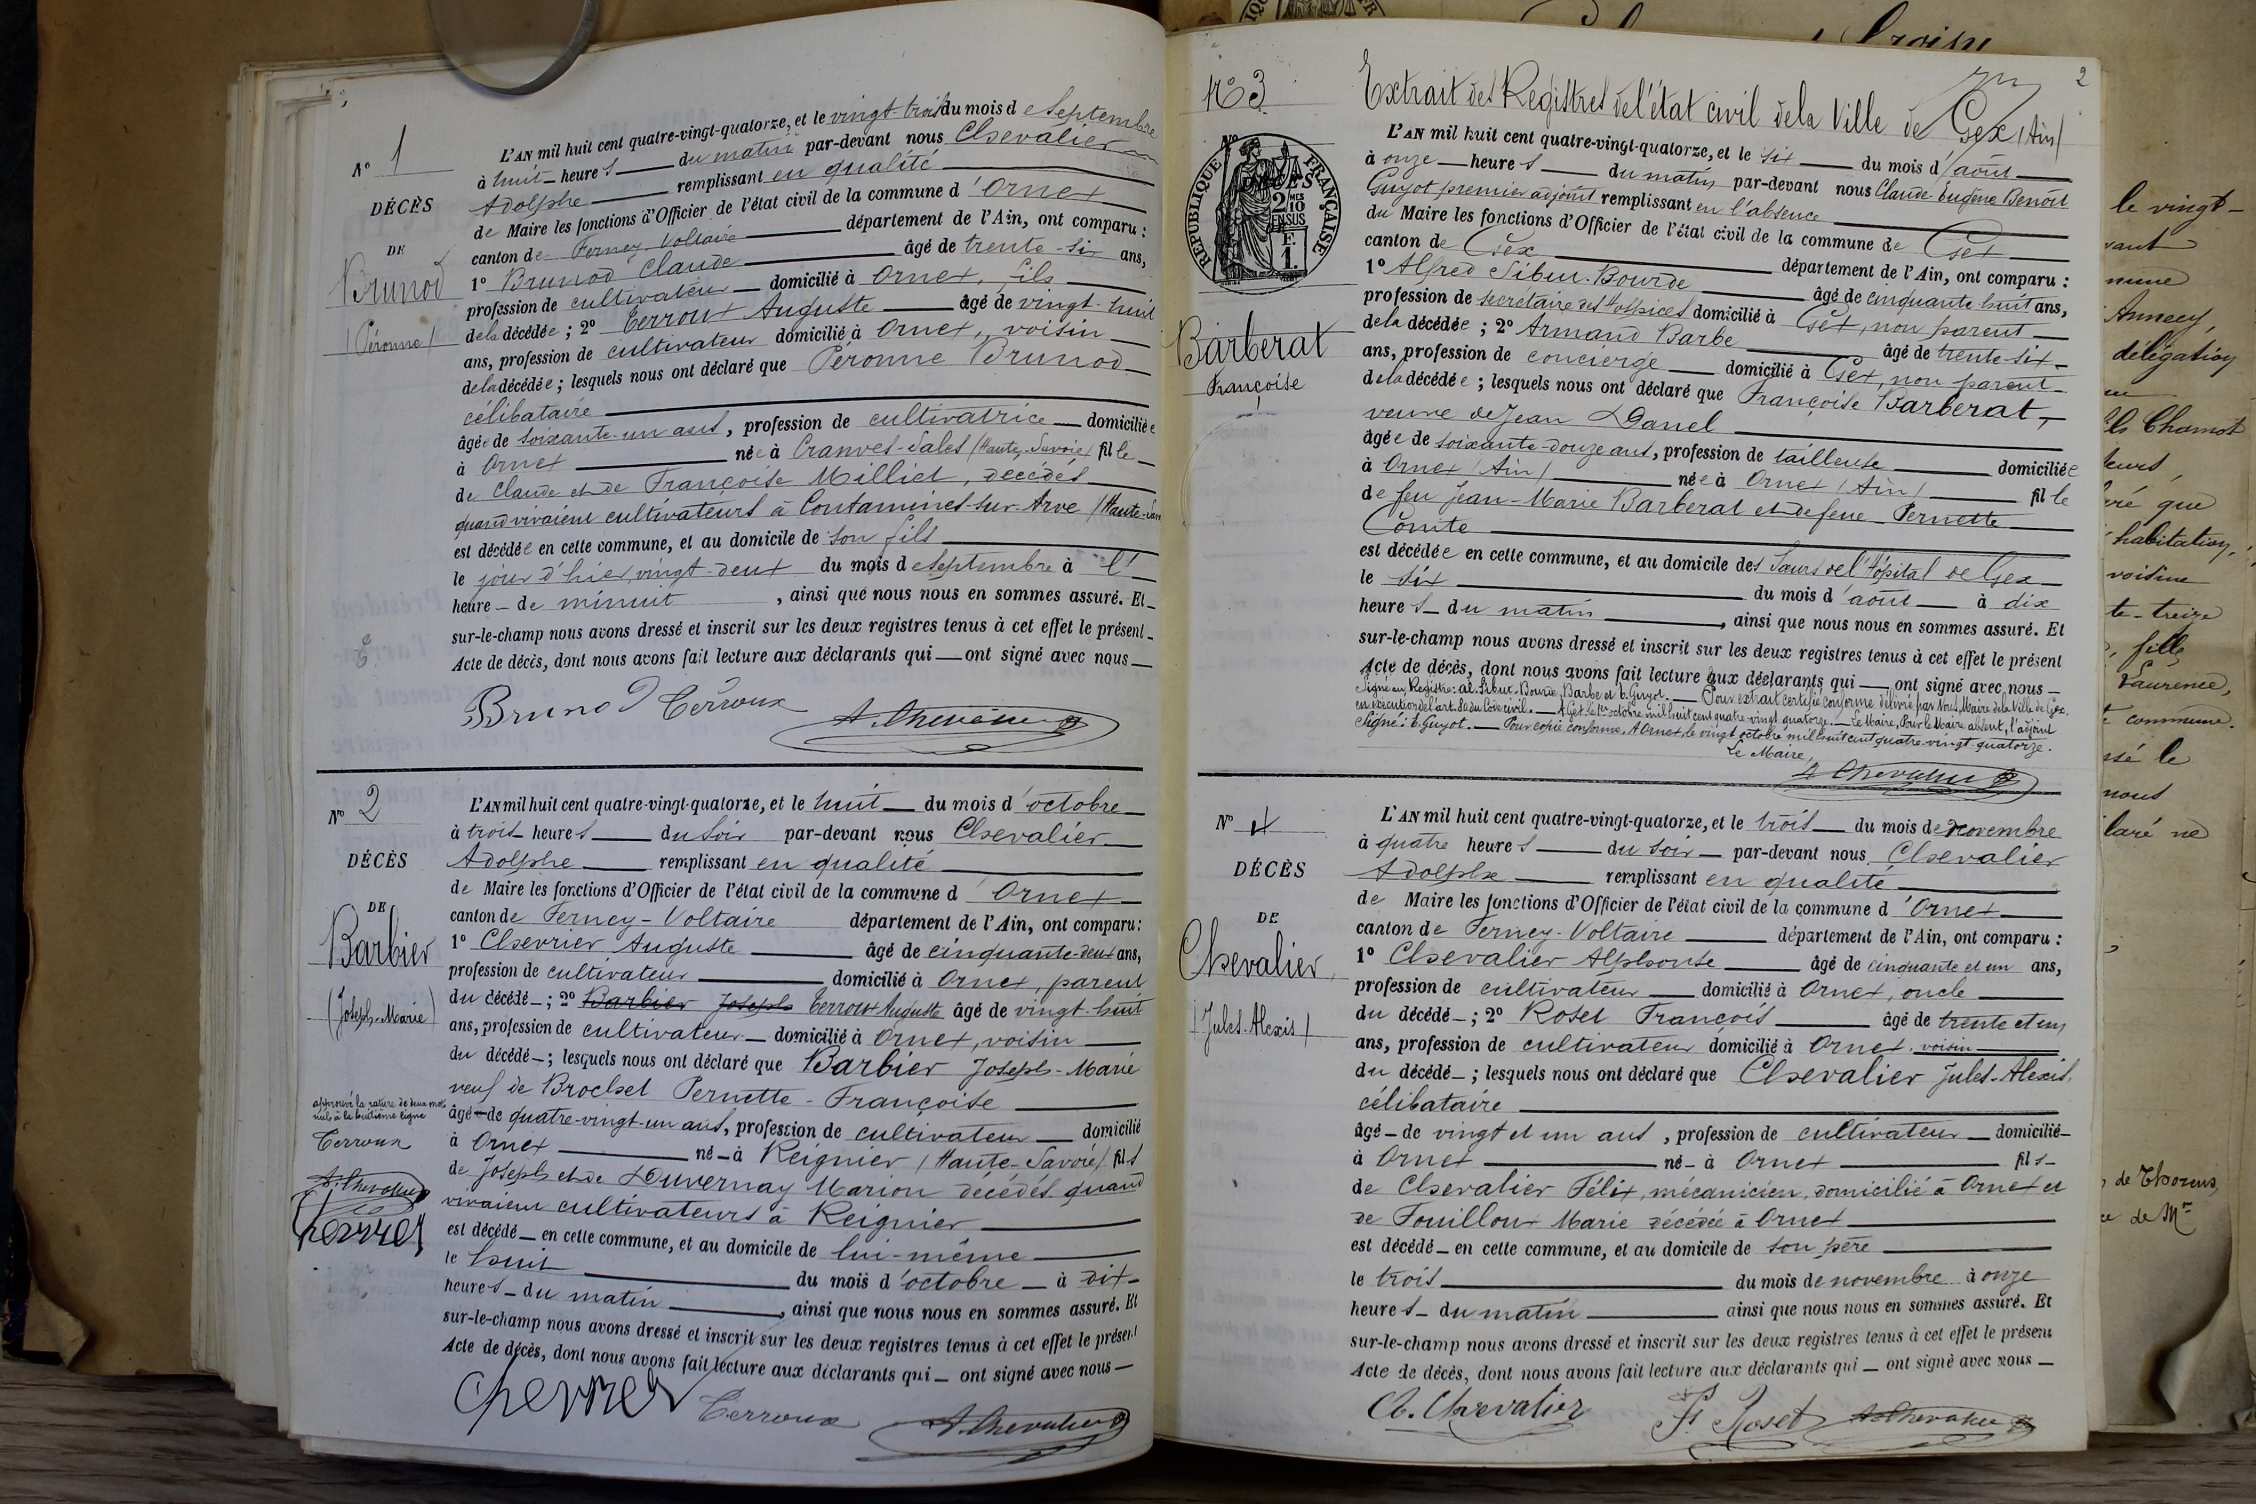 N° 1
DÉCÈS
DE
Brunod
(Péronne)
L'AN mil huit cent quatre-vingt-quatorze, et le vingt-trois du mois de Septembre
à huit heures du matin par-devant nous Chevalier
Adolphe remplissant en qualité
de Maire les fonctions d'Officier de l'état civil de la commune d'Ornex
canton de Ferney-Voltaire département de l'Ain, ont comparu :
1° Brunod Claude âgé de trente-six ans,
profession de cultivateur domicilié à Ornex, fils
de la décédée ; 2° Terroux Auguste âgé de vingt-huit
ans, profession de cultivateur domicilié à Ornex, voisin
de la décédée ; lesquels nous ont déclaré que Péronne Brunod
célibataire
âgée de soixante-un ans, profession de cultivatrice domiciliée
à Ornex née à Cranves-Sales (Haute-Savoie) fille
de Claude et de Françoise Milliet, décédés
quand vivaient cultivateurs à Contamines-sur-Arve (Haute-Sav
est décédée en cette commune, et au domicile de son fils
le jour d'hier, vingt-deux du mois de Septembre à l'
heure de minuit, ainsi que nous nous en sommes assuré. Et
sur-le-champ nous avons dressé et inscrit sur les deux registres tenus à cet effet le présent
Acte de décès, dont nous avons fait lecture aux déclarants qui ont signé avec nous
Brunod Terroux
A. Chevalier
N° 2
DÉCÈS
DE
Barbier
(Joseph-Marie)
approuvé la rature de deux mots
nuls à la huitième ligne
Terroux
A. Chevalier
Chevrier
L'AN mil huit cent quatre-vingt-quatorze, et le huit du mois d'octobre
à trois heures du soir par-devant nous Chevalier
Adolphe remplissant en qualité
de Maire les fonctions d'Officier de l'état civil de la commune d'Ornex
canton de Ferney-Voltaire département de l'Ain, ont comparu :
1° Chevrier Auguste âgé de cinquante-deux ans,
profession de cultivateur domicilié à Ornex, parent
du décédé ; 2° Barbier Joseph Terroux Auguste âgé de vingt-huit
ans, profession de cultivateur domicilié à Ornex, voisin
du décédé ; lesquels nous ont déclaré que Barbier Joseph-Marie
veuf de Brochet Pernette-Françoise
âgé de quatre-vingt-un ans, profession de cultivateur domicilié
à Ornex né à Reignier (Haute-Savoie) fils
de Joseph et de Duvernay Marion décédés quand
vivaient cultivateurs à Reignier
est décédé en cette commune, et au domicile de lui-même
le huit du mois d'octobre à dix
heures du matin, ainsi que nous nous en sommes assuré. Et
sur-le-champ nous avons dressé et inscrit sur les deux registres tenus à cet effet le présent
Acte de décès, dont nous avons fait lecture aux déclarants qui ont signé avec nous
Chevrier Terroux A. Chevalier
2
N° 3
RÉPUBLIQUE FRANÇAISE
2 10 MES
EN SUS
F.
1.
Barberat
Françoise
Extrait des Registres de l'état civil de la Ville de Gex (Ain)
L'AN mil huit cent quatre-vingt-quatorze, et le six du mois d'août
à onze heures du matin par-devant nous Claude-Eugène Benoît
Guyot premier adjoint remplissant en l'absence
du Maire les fonctions d'Officier de l'état civil de la commune de Gex
canton de Gex département de l'Ain, ont comparu :
1° Alfred Sibut-Bourde âgé de cinquante-huit ans,
profession de secrétaire des Hospices domicilié à Gex, non parent
de la décédée ; 2° Armand Barbe âgé de trente-six
ans, profession de concierge domicilié à Gex, non parent
de la décédée ; lesquels nous ont déclaré que Françoise Barberat,
veuve de Jean Danel
âgée de soixante-douze ans, profession de tailleuse domiciliée
à Ornex (Ain) née à Ornex (Ain) fille
de feu Jean-Marie Barberat et de feue Pernette
Comte
est décédée en cette commune, et au domicile des Sœurs de l'Hôpital de Gex
le six du mois d'août à dix
heures du matin, ainsi que nous nous en sommes assuré. Et
sur-le-champ nous avons dressé et inscrit sur les deux registres tenus à cet effet le présent
Acte de décès, dont nous avons fait lecture aux déclarants qui ont signé avec nous
Signé au Registre : al. Sibut-Bourde, Barbe et E. Guyot. Pour extrait certifié conforme délivré par Nous, Maire de la Ville de Gex,
en exécution de l'art. 80 du Code civil. A Gex, le 1er octobre mil huit cent quatre-vingt-quatorze. Le Maire, Pour le Maire absent, l'adjoint
Signé : E. Guyot. Pour copie conforme. A Ornex, le vingt octobre mil huit cent quatre-vingt-quatorze.
Le Maire,
A. Chevalier
N° 4
DÉCÈS
DE
Chevalier
(Jules-Alexis)
L'AN mil huit cent quatre-vingt-quatorze, et le trois du mois de novembre
à quatre heures du soir par-devant nous Chevalier
Adolphe remplissant en qualité
de Maire les fonctions d'Officier de l'état civil de la commune d'Ornex
canton de Ferney-Voltaire département de l'Ain, ont comparu :
1° Chevalier Alphonse âgé de cinquante et un ans,
profession de cultivateur domicilié à Ornex, oncle
du décédé ; 2° Roset François âgé de trente et un
ans, profession de cultivateur domicilié à Ornex, voisin
du décédé ; lesquels nous ont déclaré que Chevalier Jules-Alexis,
célibataire
âgé de vingt et un ans, profession de cultivateur domicilié
à Ornex né à Ornex fils
de Chevalier Félix, mécanicien, domicilié à Ornex et
de Fouilloux Marie décédée à Ornex
est décédé en cette commune, et au domicile de son père
le trois du mois de novembre à onze
heures du matin ainsi que nous nous en sommes assuré. Et
sur-le-champ nous avons dressé et inscrit sur les deux registres tenus à cet effet le présent
Acte de décès, dont nous avons fait lecture aux déclarants qui ont signé avec nous
Ch. Chevalier Fs Roset A. Chevalier
le vingt-
Annecy,
délégation
Chamot
que
habitation,
voisine
te-treize
fille
Laurence,
commune.
le
nous
laré ne
de Thorens,
de Mr